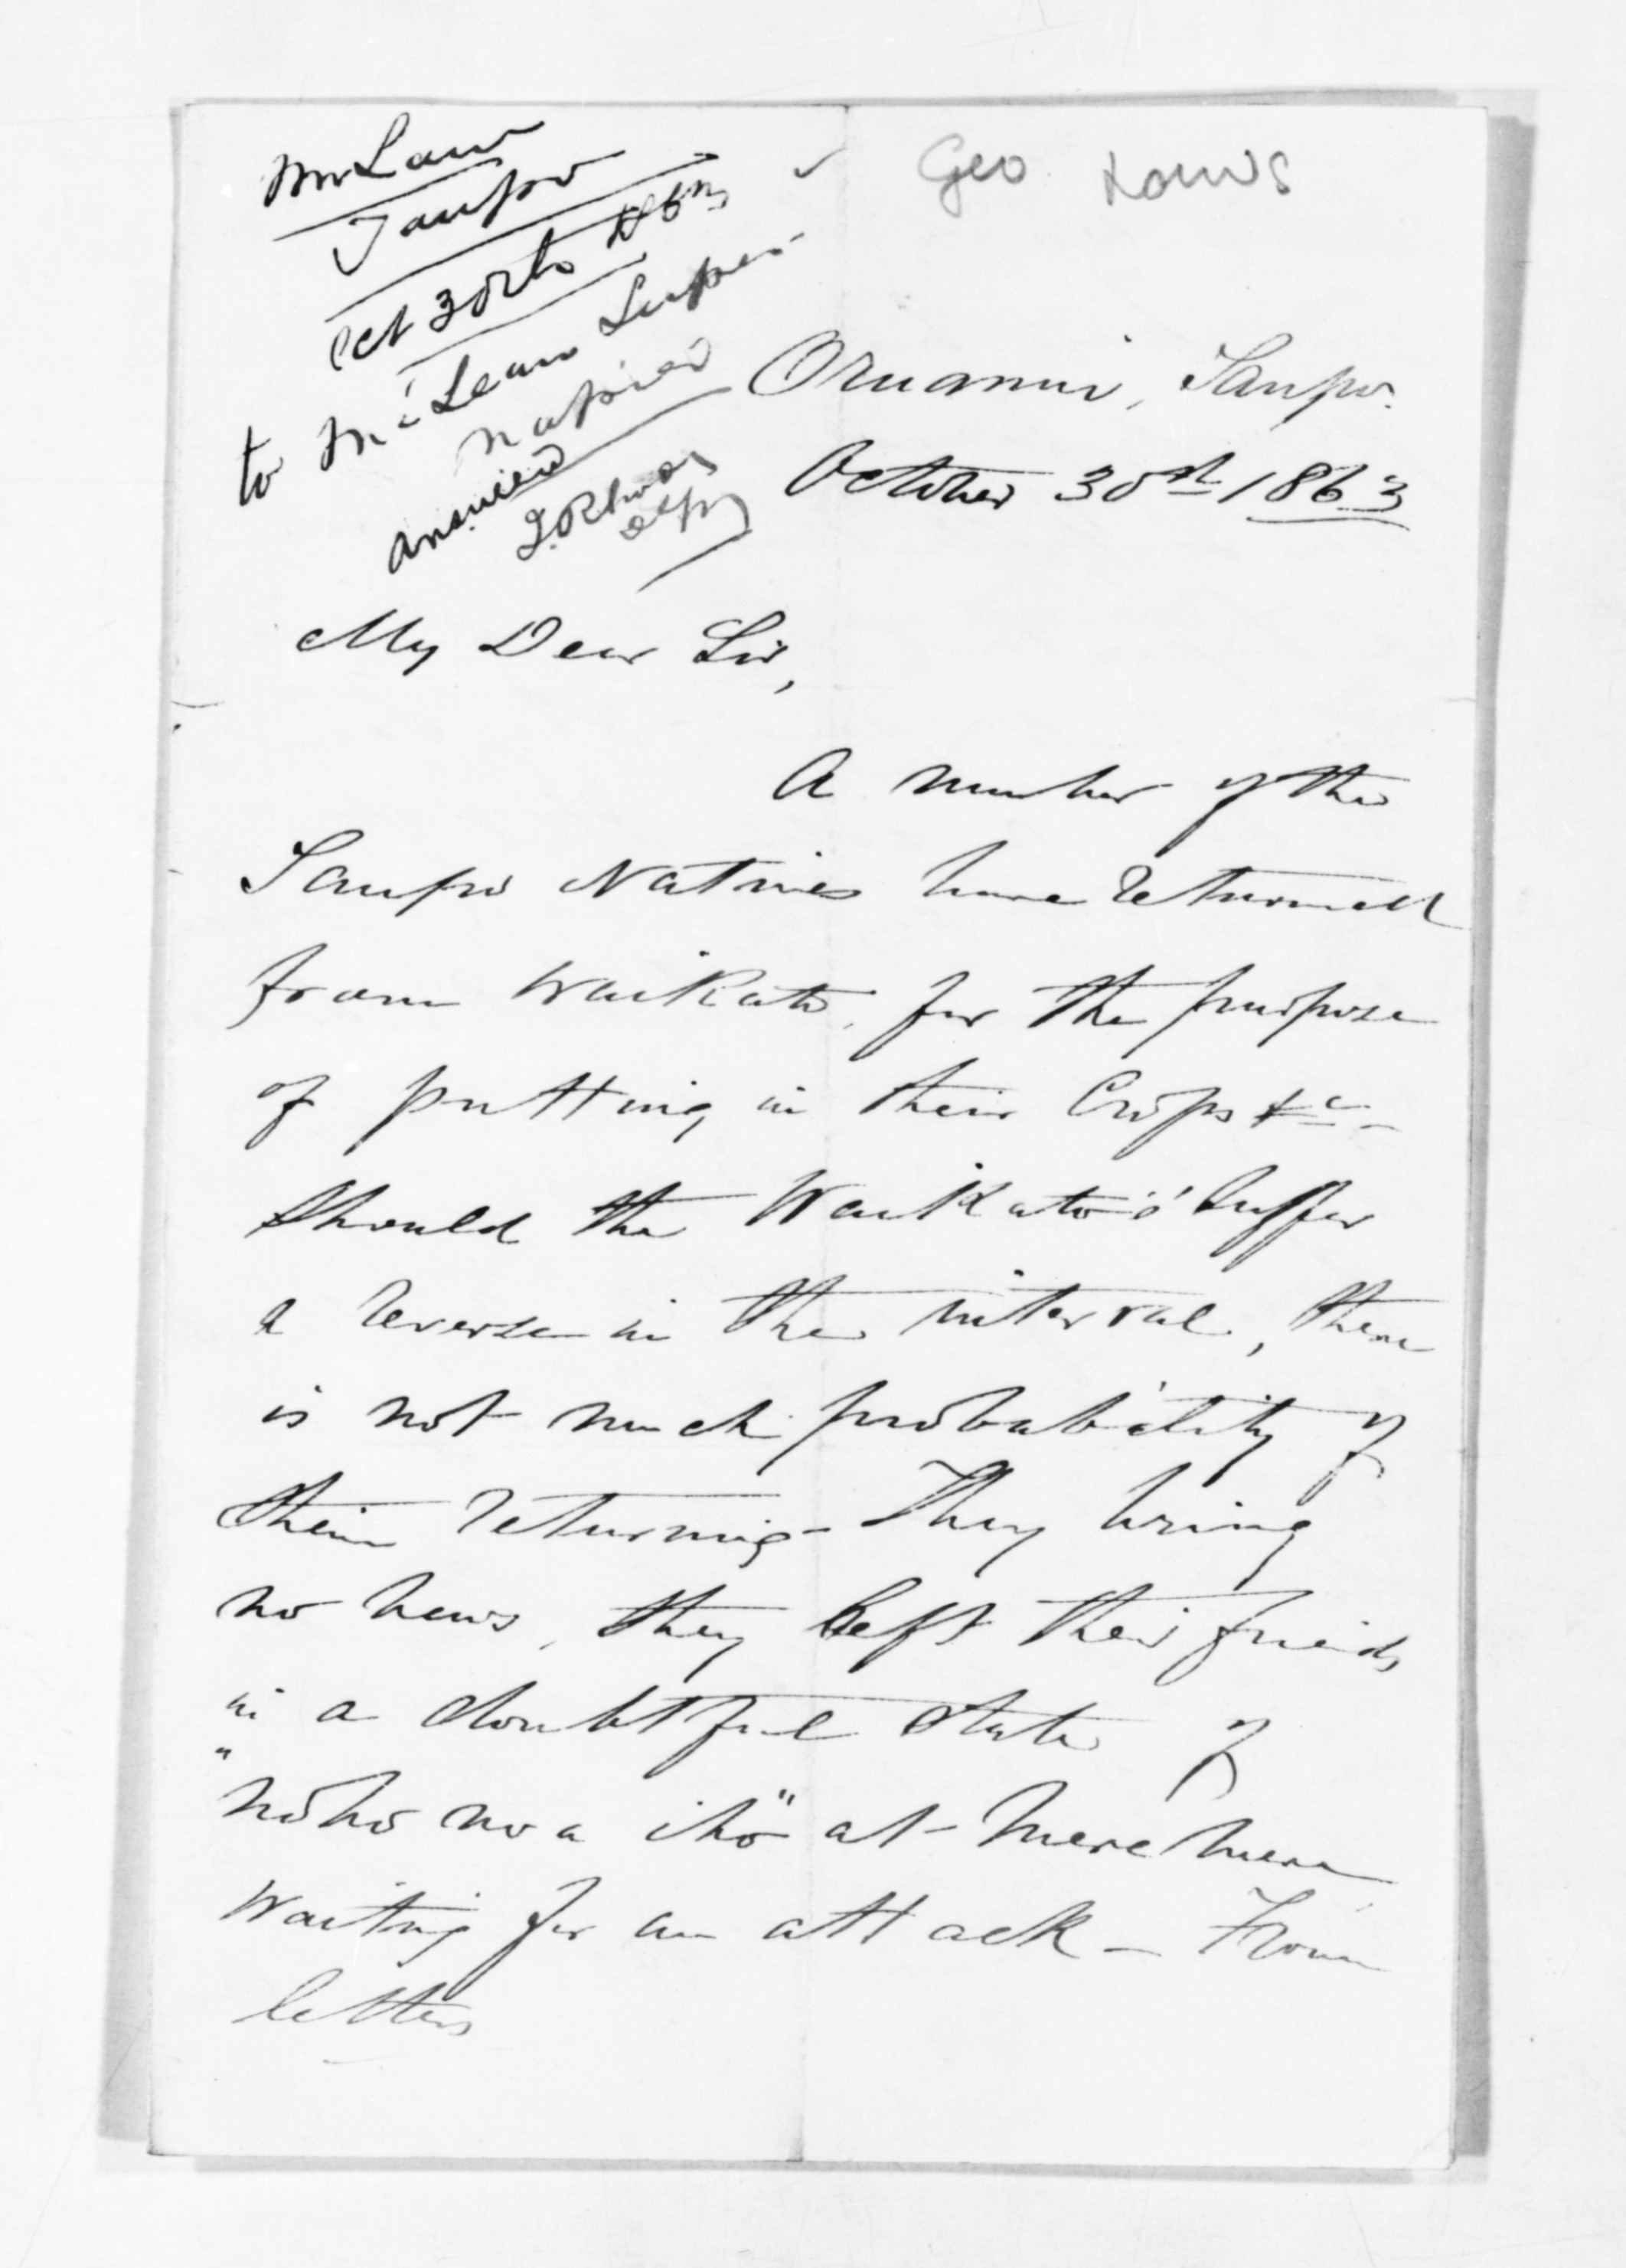 Mr Law
Taupo
Oct 30th 1863
to McLean Super
Napier
answered
Geo Laws
Oruanui, Taupo.
October 30th 1863
My Dear Sir,
A number of the
Taupo Natives have returned
from Waikato, for the purpose
of putting in their Crops &c -
Should the Waikato's suffer
a reverse in the interval, there
is not much probability of
their returning - They bring
no news, they left their friends
in a doubtful state of
"noho noa iho" at Mere mere
Waiting for an attack - From
letters